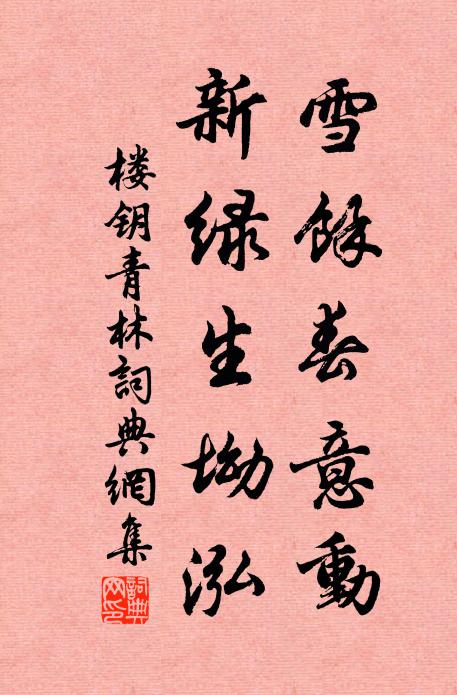 雪餘春意動
新绿生坳泓
楼钥青林詞典網集
詞典
网印